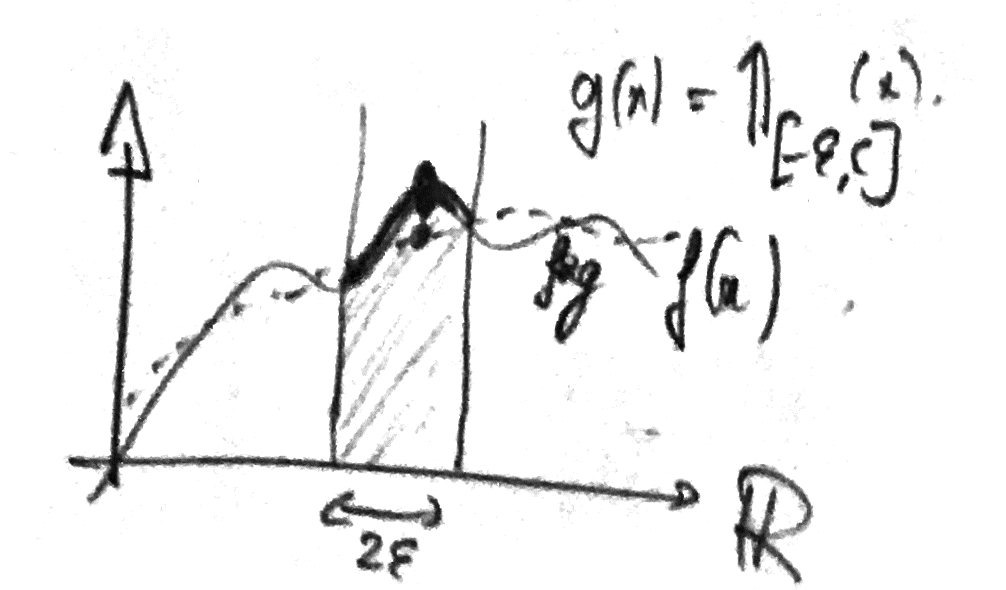 g(x) = 𝟙[-ε,ε](x).
f*g
f(x)
2ε
ℝ